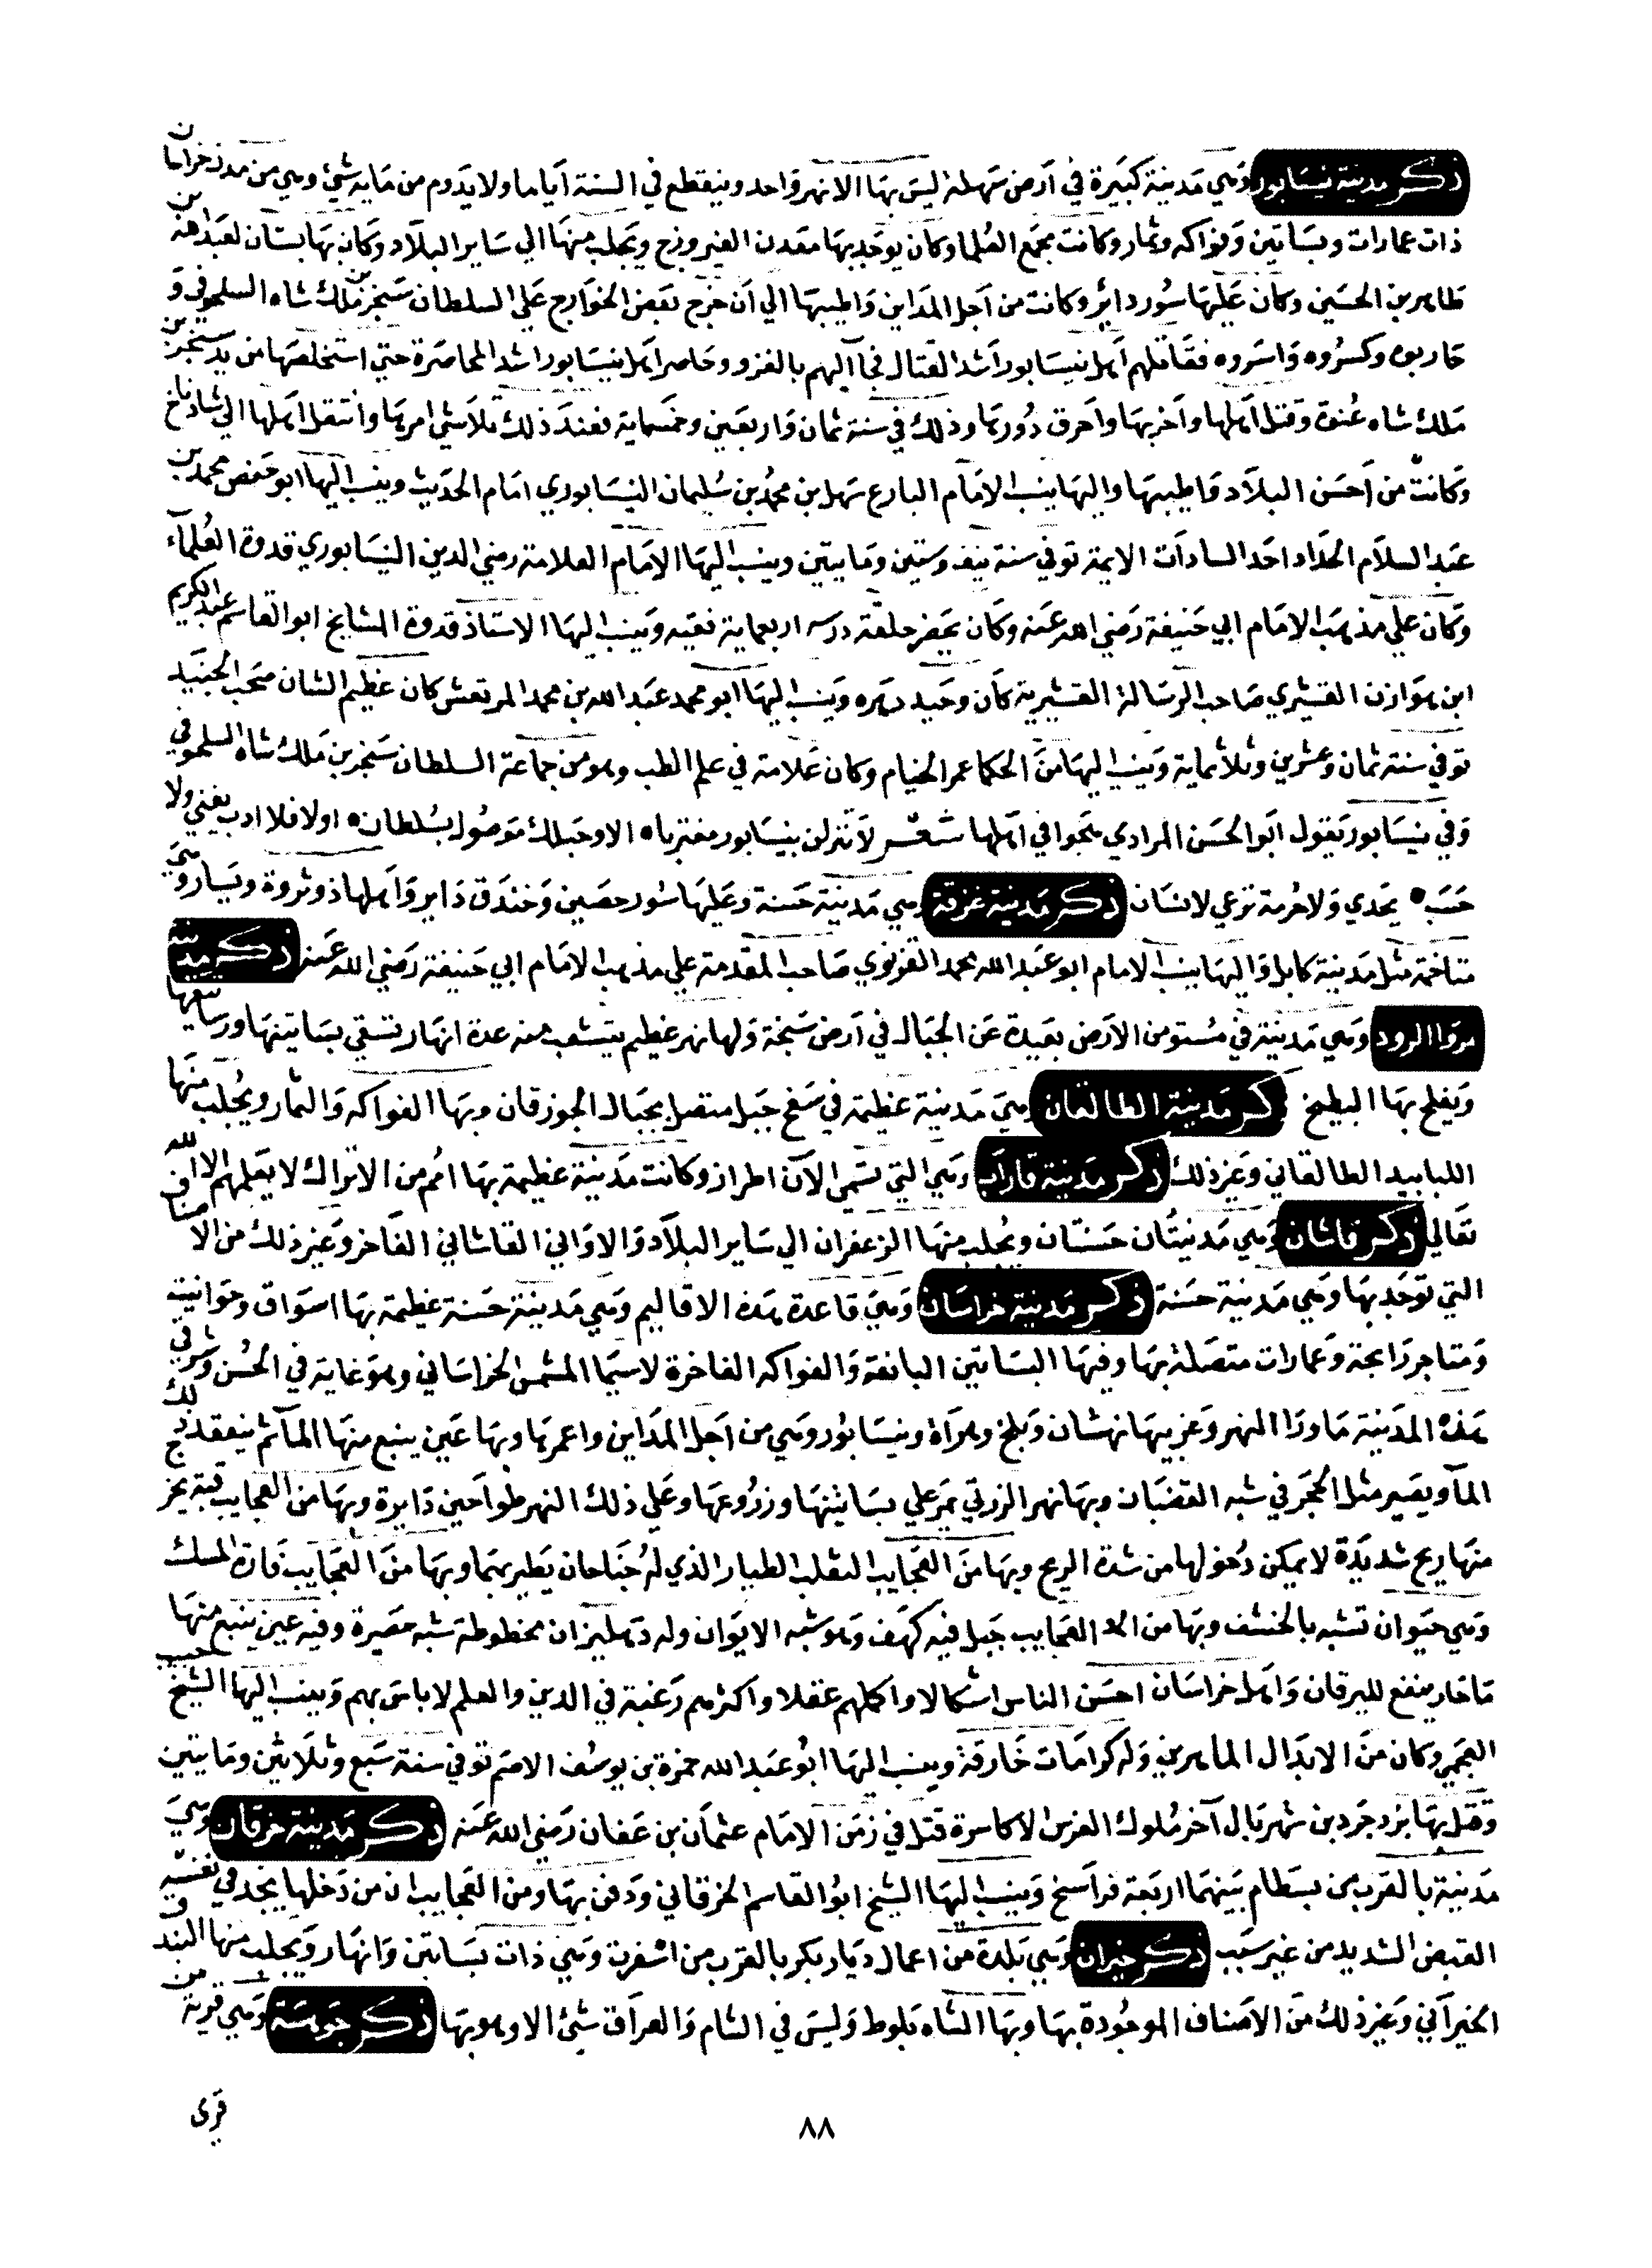 ذكر مدينة نيسابور وهي مدينة كبيرة في أرض سهلة ليس بها الا نهر واحد وينقطع في السنة أياما ولا يدوم من مايه شيء وهي من مدن خراسان
ذات عمارات وبساتين وفواكه وثمار وكانت مجمع العلما وكان يوجد بها معدن الفيروزج ويجلب منها الي ساير البلاد وكان بها بستان لعبد الله بن
طاهر بن الحسين وكان عليها سور دائر وكانت من اجل المداين واطيبها الي أن خرج بعض الخوارج علي السلطان سنجر بن ملك شاه السلجوقي و
حاربوه وكسروه واسروه فقاتلهم اهل نيسابور أشد القتال فجا اليهم بالغزو وحاصر اهل نيسابور اشد المحاصرة حتي استخلصها من يد سنجر بن
ملك شاه عنوة وقتل اهلها واخربها واحرق دورها وذلك في سنة ثمان واربعين وخمسماية فعند ذلك تلاشي امرها وانتقل اهلها الي شادناخ
وكانت من أحسن البلاد واطيبها واليها ينسب الامام البارع سهل بن محمد بن سليمان النيسابوري امام الحديث وينسب اليها ابو حفص محمد بن
عبد السلام الحداد احد السادات الايمة توفي سنة نيف وستين ومايتين وينسب اليها الامام العلامة رضي الدين النيسابوري قدوة العلماء
وكان علي مذهب الامام ابي حنيفة رضي الله عنه وكان يحضر حلقة درسه اربعماية فقيه وينسب اليها الاستاذ قدوة المشايخ ابو القاسم عبد الكريم
ابن هوازن القشيري صاحب الرسالة القشيرية كان وحيد دهره وينسب اليها ابو محمد عبد الله بن محمد المرتعش كان عظيم الشان صحب الجنيد
توفي سنة ثمان وعشرين وثلاثماية وينسب اليها من الحكما عمر الخيام وكان علامة في علم الطب وهو من جماعة السلطان سنجر بن ملك شاه السلجوقي
وفي نيسابور يقول ابو الحسن المرادي هجوا في اهلها شعر لا تنزلن بنيسابور مغتربا • الا وحبلك موصول بسلطان • اولا فلا ادب يغني ولا
حسب • يجدي ولا حرمة ترعي لانسان ذكر مدينة غزقة وهي مدينة حسنة وعليها سور حصين وخندق داير واهلها ذو ثروة ويسار وهي
متاخمة مثل مدينة كابل واليها ينسب الامام ابو عبد الله محمد الغزنوي صاحب المقدمة علي مذهب الامام ابي حنيفة رضي الله عنه ذكر مدينة
مرو الرود وهي مدينة في مستو من الارض بعيدة عن الجبال في أرض سبخة ولها نهر عظيم يتشعب منه عدة انهار تسقي بساتينها ورساتيقها
ويفلح بها البطيخ ذكر مدينة الطالقان وهي مدينة عظيمة في سفح جبل متصل بجبال الجوزقان وبها الفواكه والثمار ويجلب منها
اللبابيد الطالقاني وغير ذلك ذكر مدينة فاراب وهي التي تسمي الآن اطرار وكانت مدينة عظيمة بها امم من الاتراك لا يعلمهم الا الله
تعالي ذكر قاشان وهي مدينتان حسنتان ويجلب منها الزعفران الي ساير البلاد والاواني القاشاني الفاخر وغير ذلك من الاصناف
التي توجد بها وهي مدينة حسنة ذكر مدينة خراسان وهي قاعدة هذه الاقاليم وهي مدينة حسنة عظيمة بها اسواق وحوانيت
ومتاجر رابحة وعمارات متصلة بها وفيها البساتين اليانعة والفواكه الفاخرة لا سيما المشمش الخراساني وهو غاية في الحسن وشرقي
هذه المدينة ماورا النهر وغربيها نهشان وبلخ وهراة ونيسابور وهي من اجل المداين واعمرها وبها عين ينبع منها المآ ثم ينعقد ذلك
المآ ويصير مثل الحجر في شبه القضبان وبها نهر الرزيق يمر علي بساتينها وزروعها وعلي ذلك النهر طواحين دايرة وبها من العجايب قبة يخرج
منها ريح شديدة لا يمكن دخولها من شدة الريح وبها من العجايب الثعلب الطيار الذي له جناحان يطير بهما وبها من العجايب فارة المسك
وهي حيوان تشبه بالخشف وبها من العجايب جبل فيه كهف وهو شبه الايوان وله دهليزان مخطوطة شبه حصيرة وفيه عين ينبع منها
ما حار ينفع لليرقان واهل خراسان احسن الناس اشكالا واكملهم عقلا واكثرهم رغبة في الدين والعلم لا باس بهم وينسب اليها الشيخ حبيب
العجمي وكان من الابدال الماهرين وله كرامات خارقة وينسب اليها ابو عبد الله حمزة بن يوسف الاصم توفي سنة سبع وثلاثين ومايتين
وقتل بها يزدجرد بن شهريال آخر ملوك الفرس الاكاسرة قتل في زمن الامام عثمان بن عفان رضي الله عنه ذكر مدينة خرقان وهي
مدينة بالقرب من بسطام بينهما اربعة فراسخ وينسب اليها الشيخ ابو القاسم الخرقاني ودفن بها ومن العجايب ان من دخلها يجد في نفسه
القبض الشديد من غير سبب ذكر خيزان وهي بلدة من اعمال ديار بكر بالقرب من اشفرت وهي ذات بساتين وانهار ويجلب منها البندق
الخيزاني وغير ذلك من الاصناف الموجودة بها وبها الشاه بلوط وليس في الشام والعراق شئ الا وهو بها ذكر جوهسته وهي قرية من
قرى
٨٨